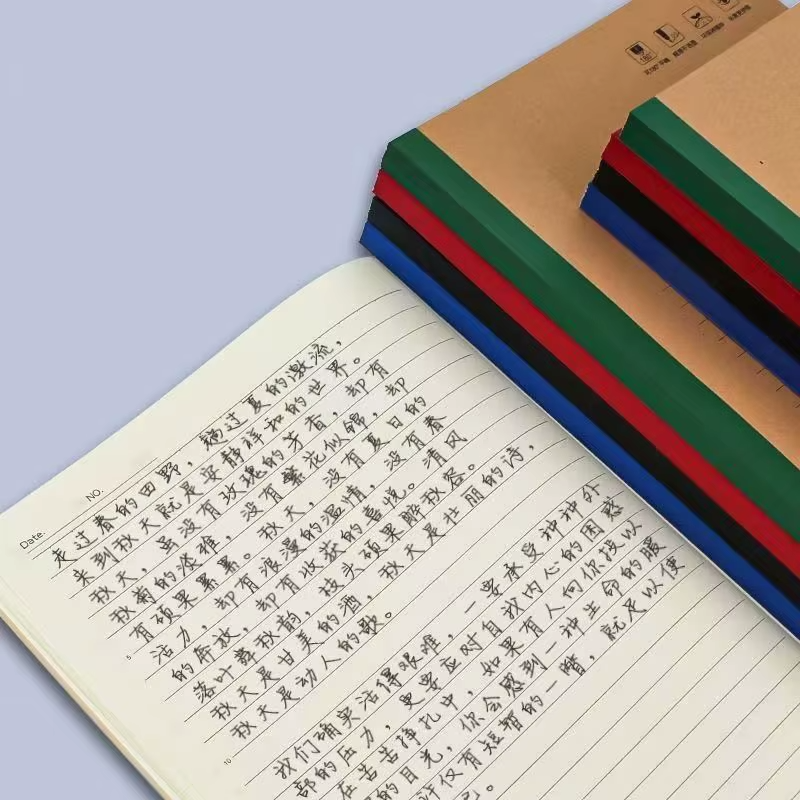 180°
Date.
NO.
走过春的田野，趟过夏的激流，
来到秋天就是安静祥和的世界。
秋天，虽没有玫瑰的芳香，却有
秋菊的淡雅，没有繁花似锦，却
有硕果累累。秋天，没有夏日的
活力，却有浪漫的温情，没有春
的奔放，却有收获的喜悦。清风
落叶舞秋韵，枝头硕果醉秋容。
秋天是甘美的酒，秋天是壮丽的诗，
秋天是动人的歌。
我们确实活得艰难，一要承受种种外
部的压力，更要应对自我内心的困惑
在苦苦挣扎中，如果有人向你投以
的目光，你会感到一种生命的暖
许仅有短暂的一瞥，就足以使
5
10